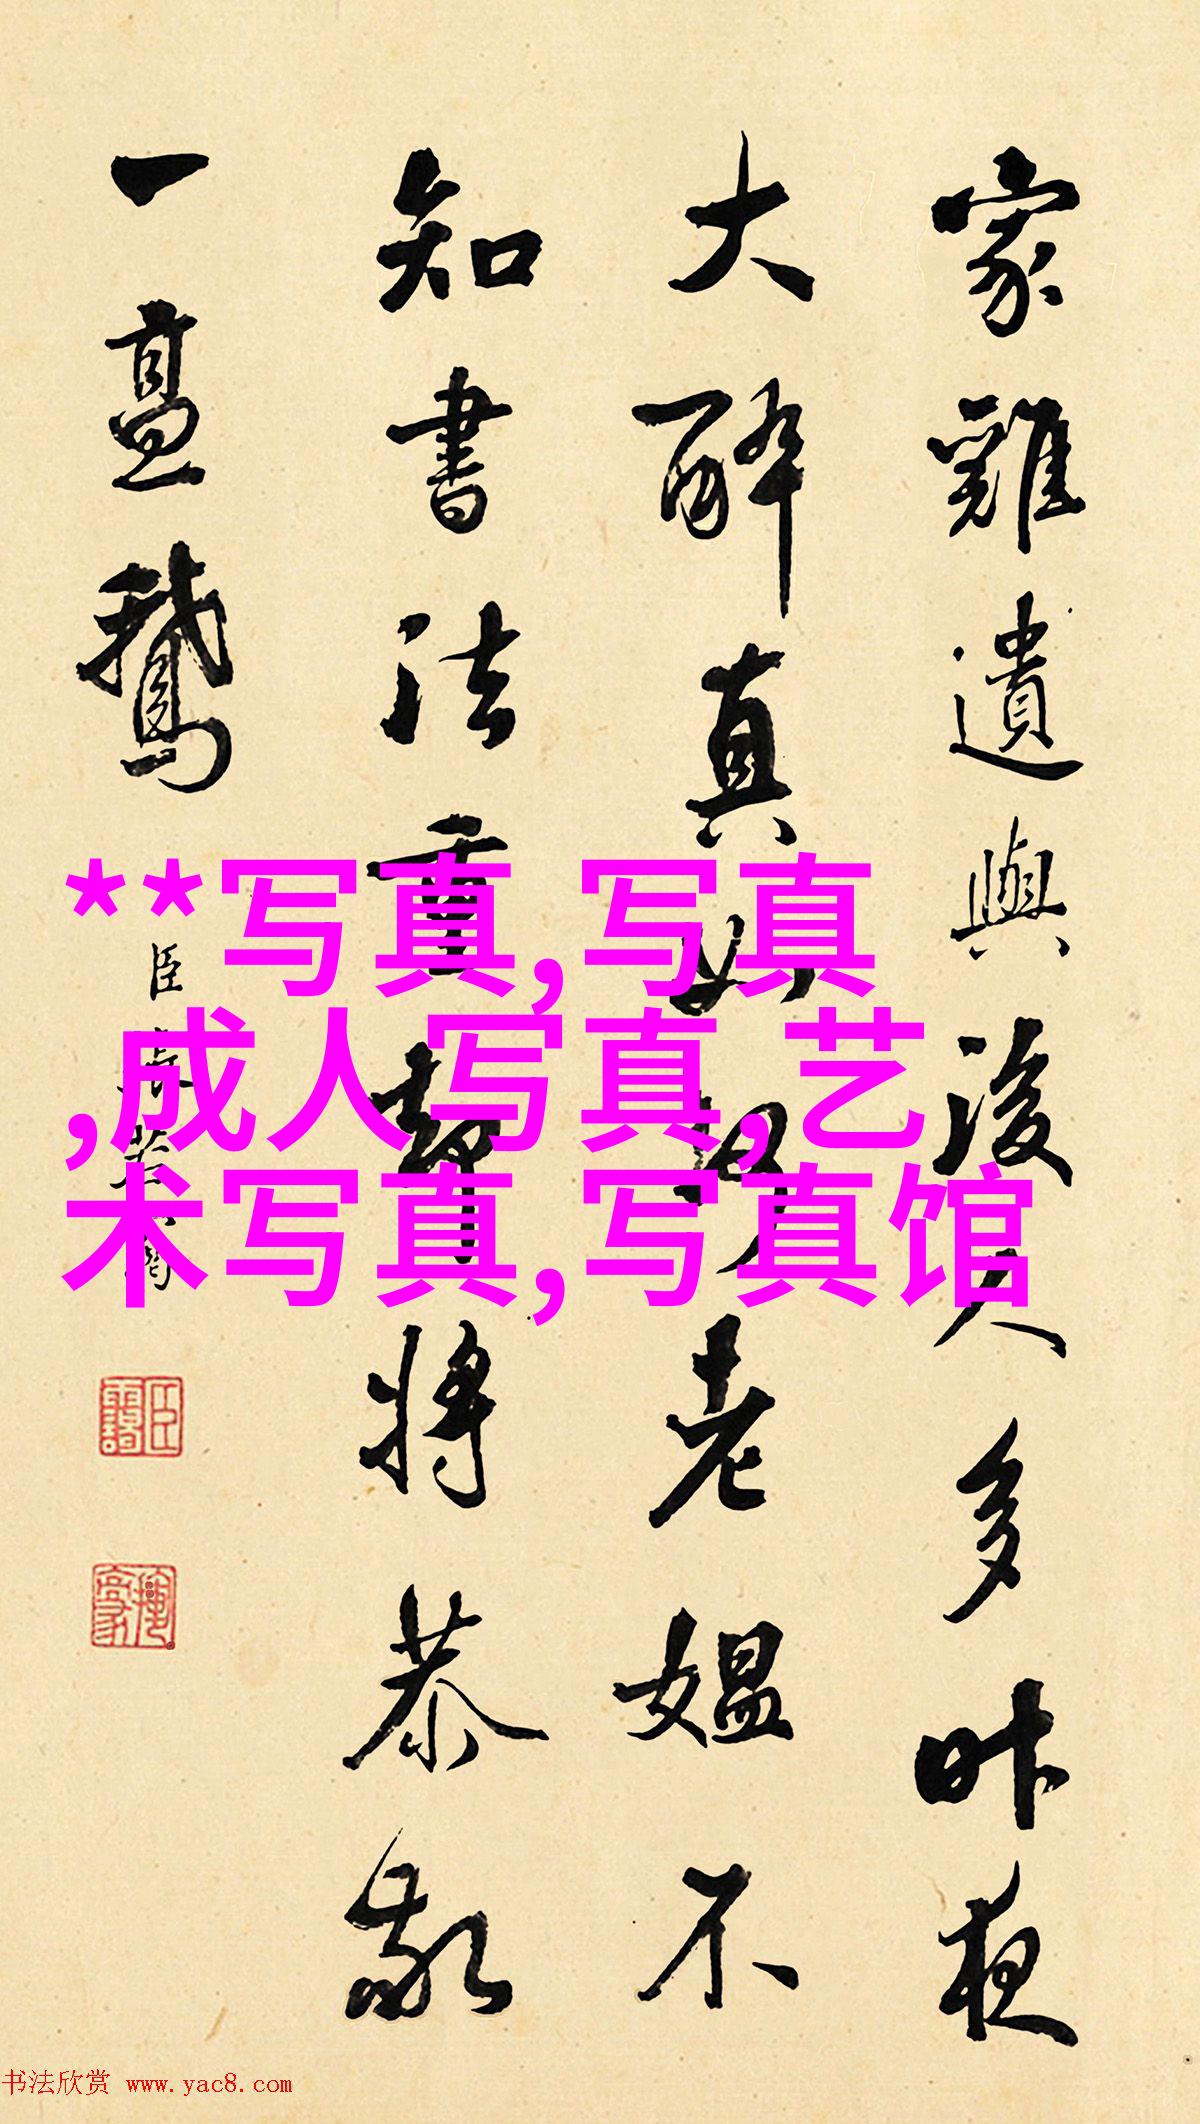 家雞遺與後人多昨夜
大醉真老媼不
知書法重將恭敬
一鵝
臣
**写真,写真
,成人写真,艺
术写真,写真馆
书法欣赏 www.yac8.com